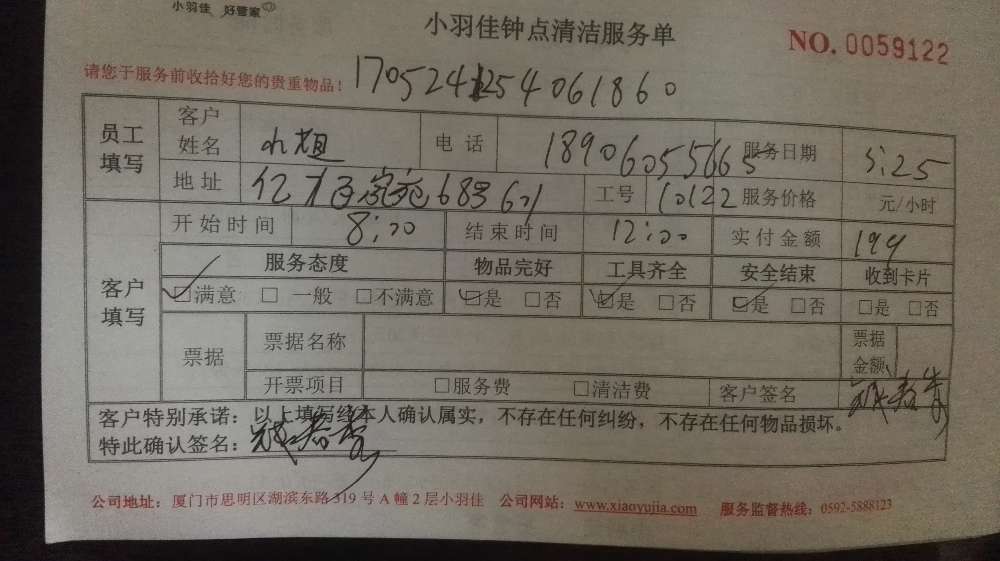 小羽佳 好管家
小羽佳钟点清洁服务单
NO. 0059122
请您于服务前收拾好您的贵重物品！ 1705241254061860
员工填写
客户姓名 电话 18906055665 服务日期 5:25
地址 68号601 工号 10122 服务价格 元/小时
客户填写
开始时间 8:00 结束时间 12:00 实付金额 199
服务态度 物品完好 工具齐全 安全结束 收到卡片
☑满意 □一般 □不满意 ☑是 □否 ☑是 □否 ☑是 □否 □是 □否
票据 票据名称 票据金额
开票项目 □服务费 □清洁费 客户签名
客户特别承诺：以上填写经本人确认属实，不存在任何纠纷，不存在任何物品损坏。
特此确认签名：
公司地址：厦门市思明区湖滨东路 319 号 A 幢 2 层小羽佳 公司网站：www.xiaoyujia.com 服务监督热线：0592-5888123